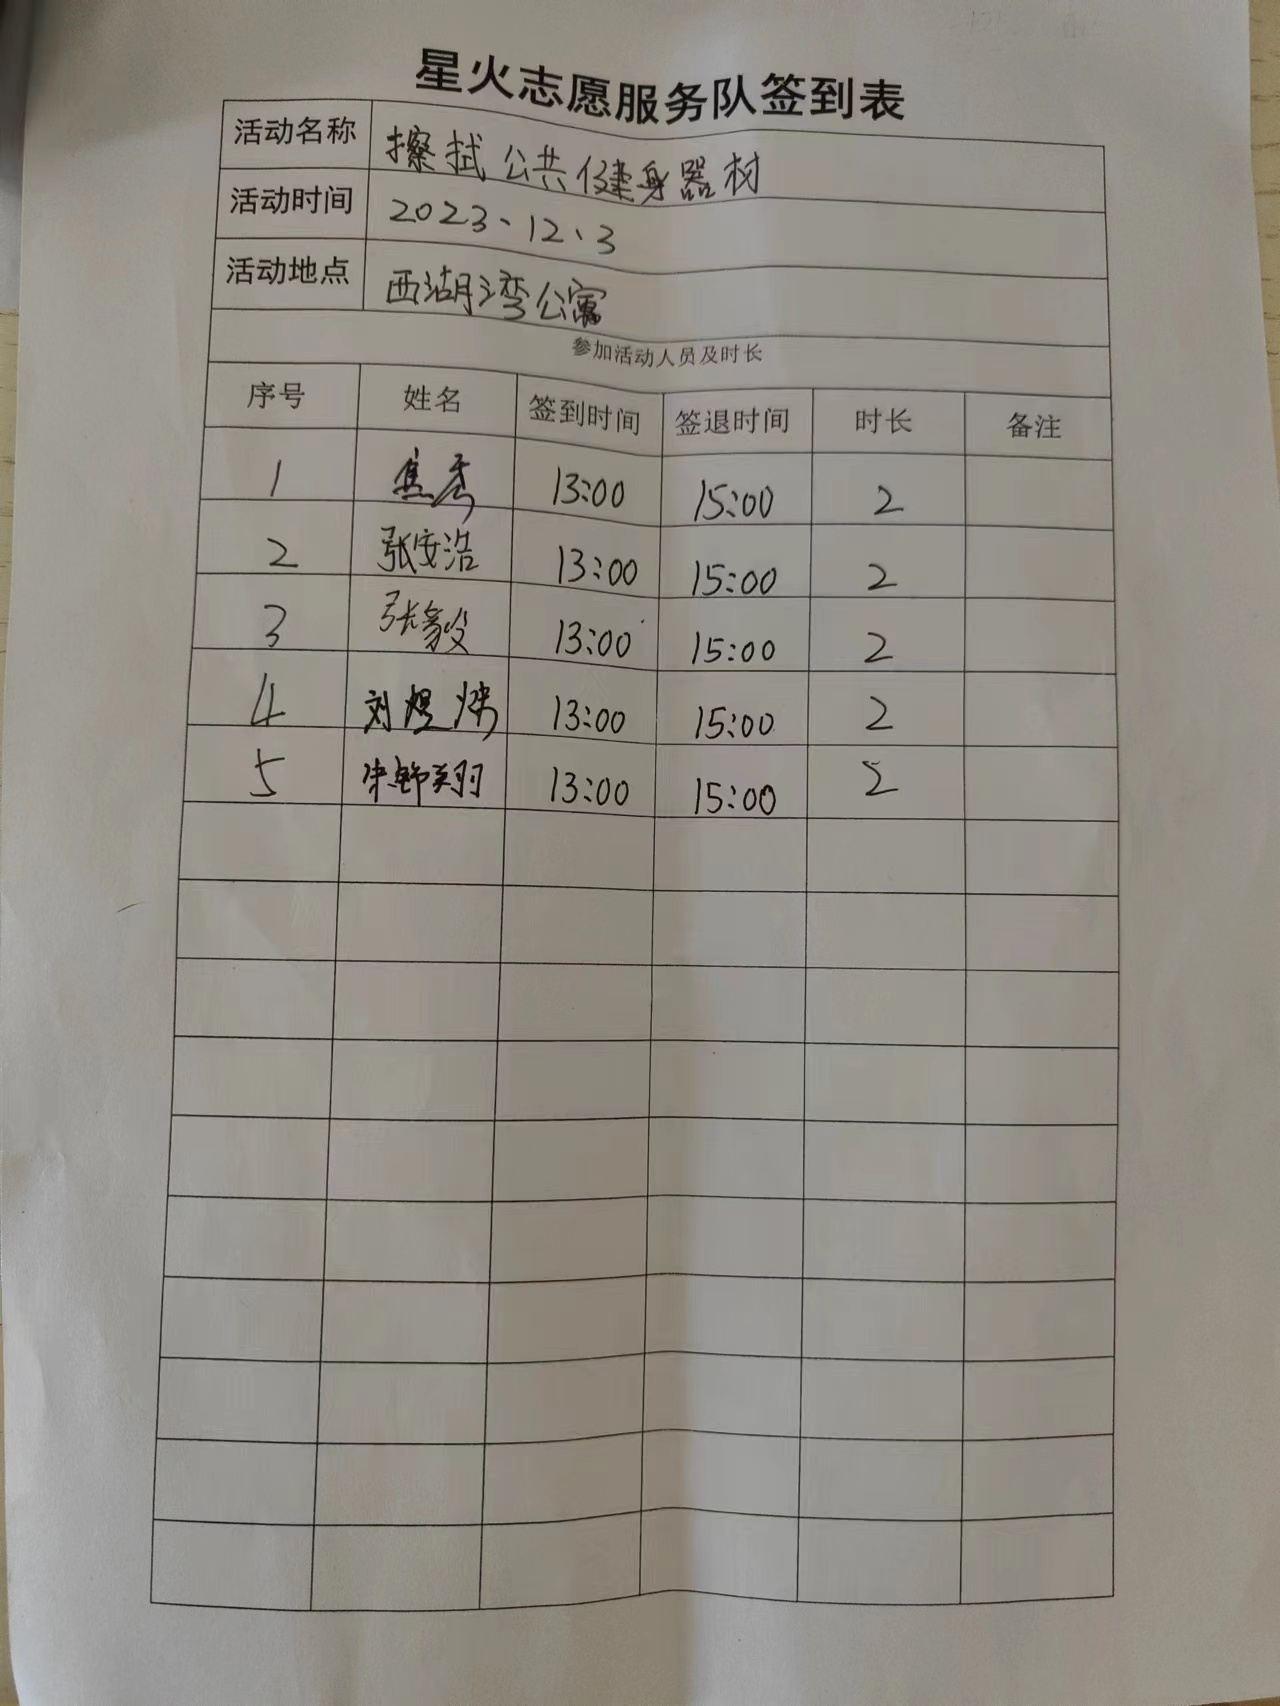 星火志愿服务队签到表
活动名称 擦拭公共健身器材
活动时间 2023、12、3
活动地点 西湖湾公寓
参加活动人员及时长
序号 姓名 签到时间 签退时间 时长 备注
1 焦秀 13:00 15:00 2
2 张安浩 13:00 15:00 2
3 张毅 13:00 15:00 2
4 刘煜 13:00 15:00 2
5 13:00 15:00 2